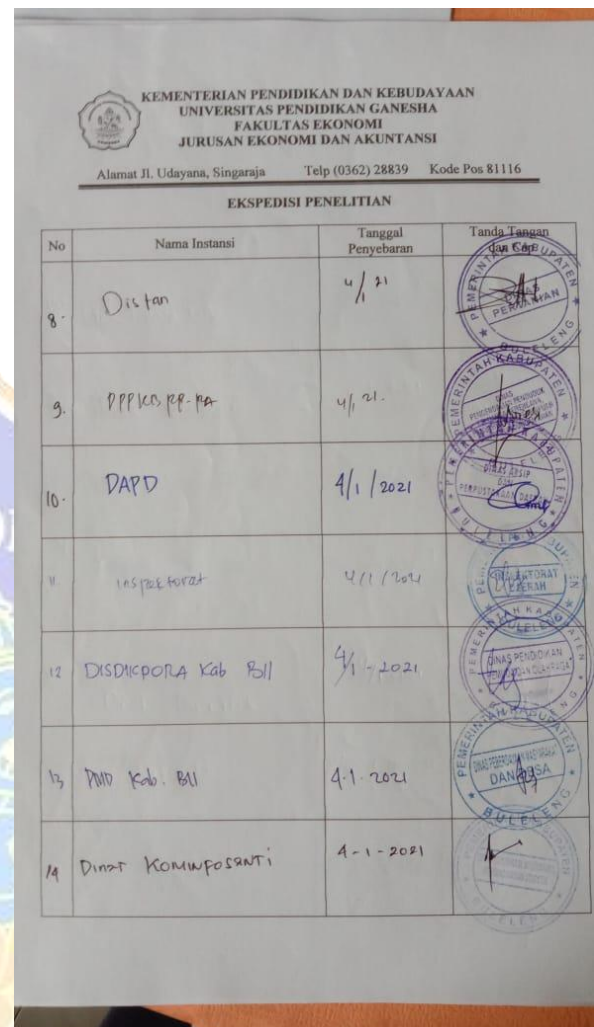 KEMENTERIAN PENDIDIKAN DAN KEBUDAYAAN
UNIVERSITAS PENDIDIKAN GANESHA
FAKULTAS EKONOMI
JURUSAN EKONOMI DAN AKUNTANSI
Alamat Jl. Udayana, Singaraja Telp (0362) 28839 Kode Pos 81116
EKSPEDISI PENELITIAN
No Nama Instansi Tanggal Penyebaran Tanda Tangan dan Cap
8. Distan 4/1 21
PEMERINTAH KABUPATEN
DINAS
PERTANIAN
BULELENG
9. DPPKB PP-PA 4/1 21.
PEMERINTAH KABUPATEN
DINAS
10. DAPD 4/1/2021
PEMERINTAH KABUPATEN
DINAS ARSIP
DAN
PERPUSTAKAAN DAERAH
BULELENG
11. Inspektorat 4/1/2021
INSPEKTORAT
DAERAH
BULELENG
12 DISDIKPORA Kab Bll 4/1-2021
PEMERINTAH KABUPATEN
DINAS PENDIDIKAN
PEMUDA DAN OLAHRAGA
13 PMD Kab. Bll 4-1-2021
PEMERINTAH KABUPATEN
DINAS PEMBERDAYAAN MASYARAKAT
DAN DESA
BULELENG
14 Dinas KOMINFOSANTI 4-1-2021